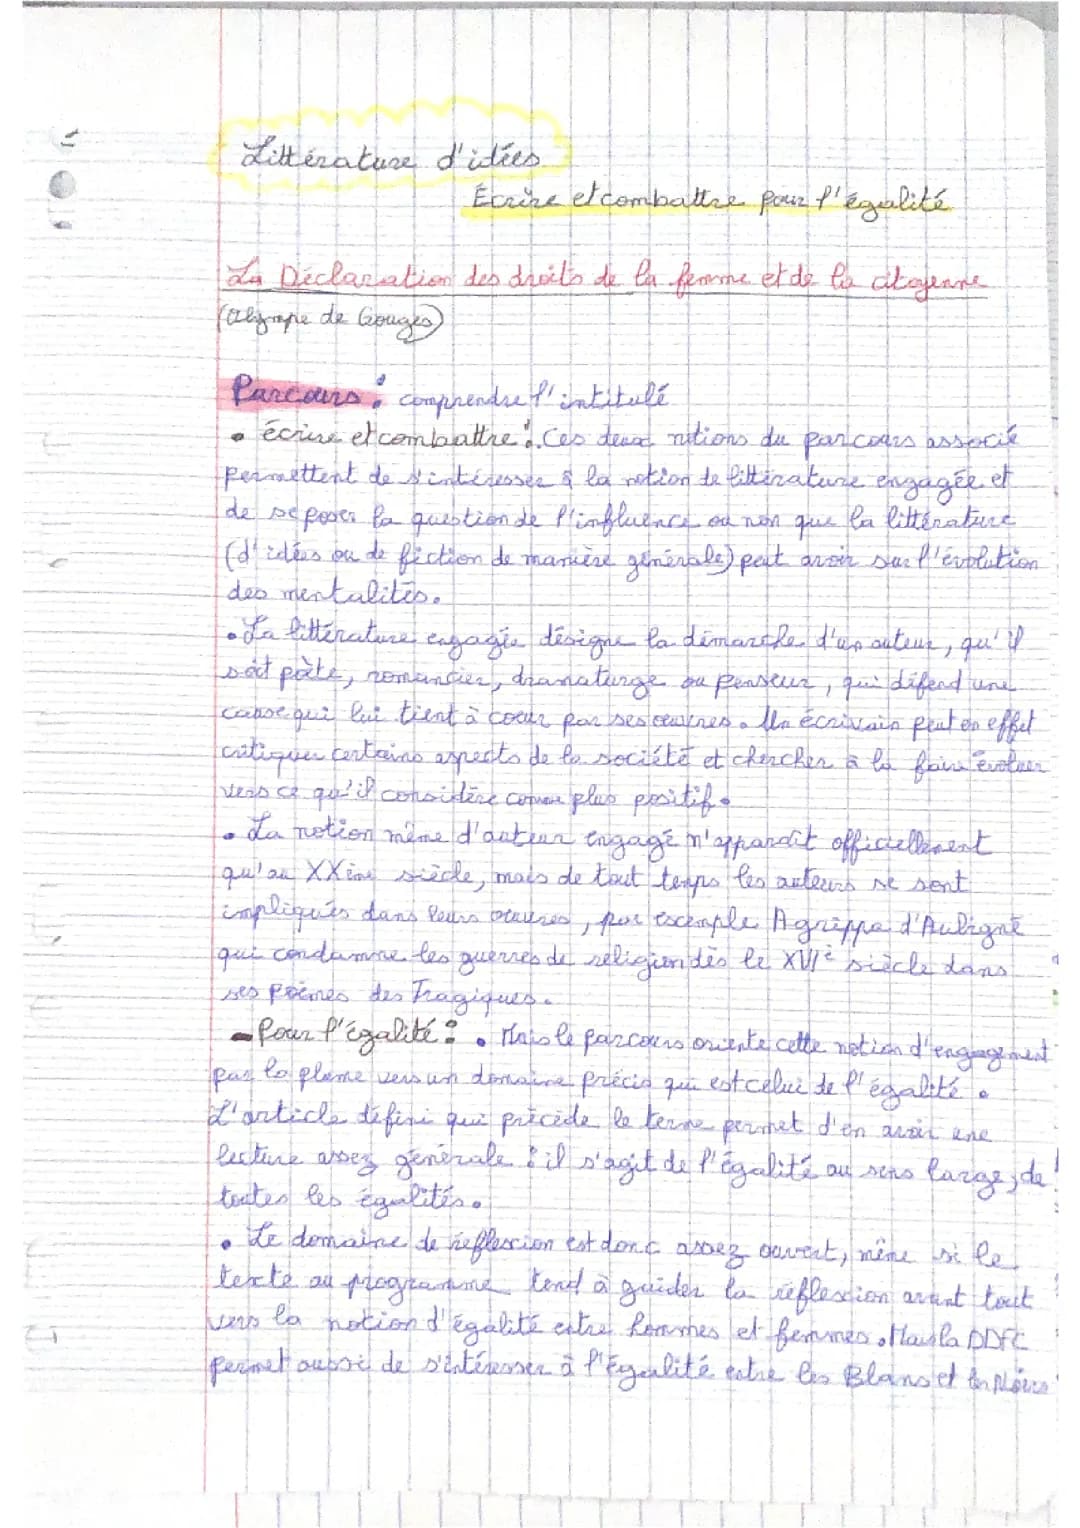 Littérature d'idées
Ecrire et combattre pour l'égalité
La Déclaration des droits de la femme et de la citoyenne
(Olympe de Gouges)
Parcours : comprendre l'intitulé
• écrire et combattre : Ces deux notions du parcours associé
permettent de s'intéresser à la notion de littérature engagée et
de se poser la question de l'influence ou non que la littérature
(d'idées ou de fiction de manière générale) peut avoir sur l'évolution
des mentalités.
• La littérature engagée désigne la démarche d'un auteur, qu'il
soit poète, romancier, dramaturge ou penseur, qui défend une
cause qui lui tient à coeur par ses oeuvres. Un écrivain peut en effet
critiquer certains aspects de la société et chercher à la faire évoluer
vers ce qu'il considère comme plus positif.
• La notion même d'auteur engagé n'apparaît officiellement
qu'au XXème siècle, mais de tout temps les auteurs se sont
impliqués dans leurs oeuvres, par exemple Agrippa d'Aubigné
qui condamne les guerres de religion dès le XVIe siècle dans
ses poèmes des Tragiques.
- Pour l'égalité : • Mais le parcours oriente cette notion d'engagement
par la plume vers un domaine précis qui est celui de l'égalité.
L'article défini qui précède le terme permet d'en avoir une
lecture assez générale : il s'agit de l'égalité au sens large, de
toutes les égalités.
• Le domaine de réflexion est donc assez ouvert, même si le
texte au programme tend à guider la réflexion avant tout
vers la notion d'égalité entre hommes et femmes. Mais la DDFC
permet aussi de s'intéresser à l'égalité entre les Blans et les Noirs